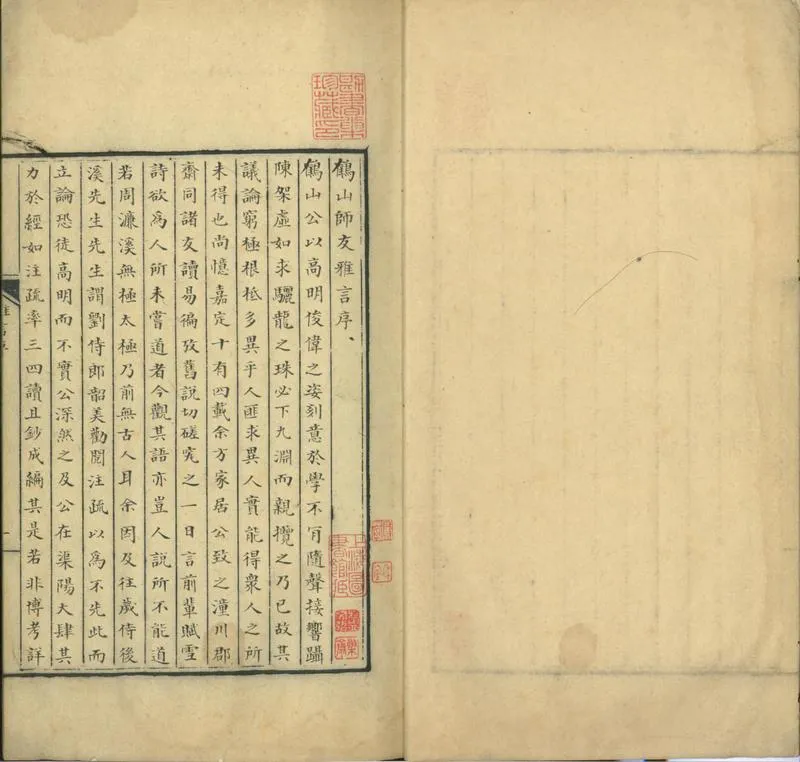 鶴山師友雅言序、
鶴山公以高明俊偉之姿刻意於學不肎隨聲接響躡
陳架虛如求驪龍之珠必下九淵而親攬之乃已故其
議論窮極根柢多異乎人匪求異人實能得衆人之所
未得也尚憶嘉定十有四載余方家居公致之潼川郡
齋同諸友讀易徧攷舊說切磋究之一日言前輩賦雪
詩欲爲人所未嘗道者今觀其語亦豈人說所不能道
若周濂溪無極太極乃前無古人耳余因及往歲侍後
溪先生先生謂劉侍郎韶美勸閱注疏以爲不先此而
立論恐徒高明而不實公深然之及公在渠陽大肆其
力於經如注疏率三四讀且鈔成編其是若非博考詳
珍藏印
上海圖書館藏